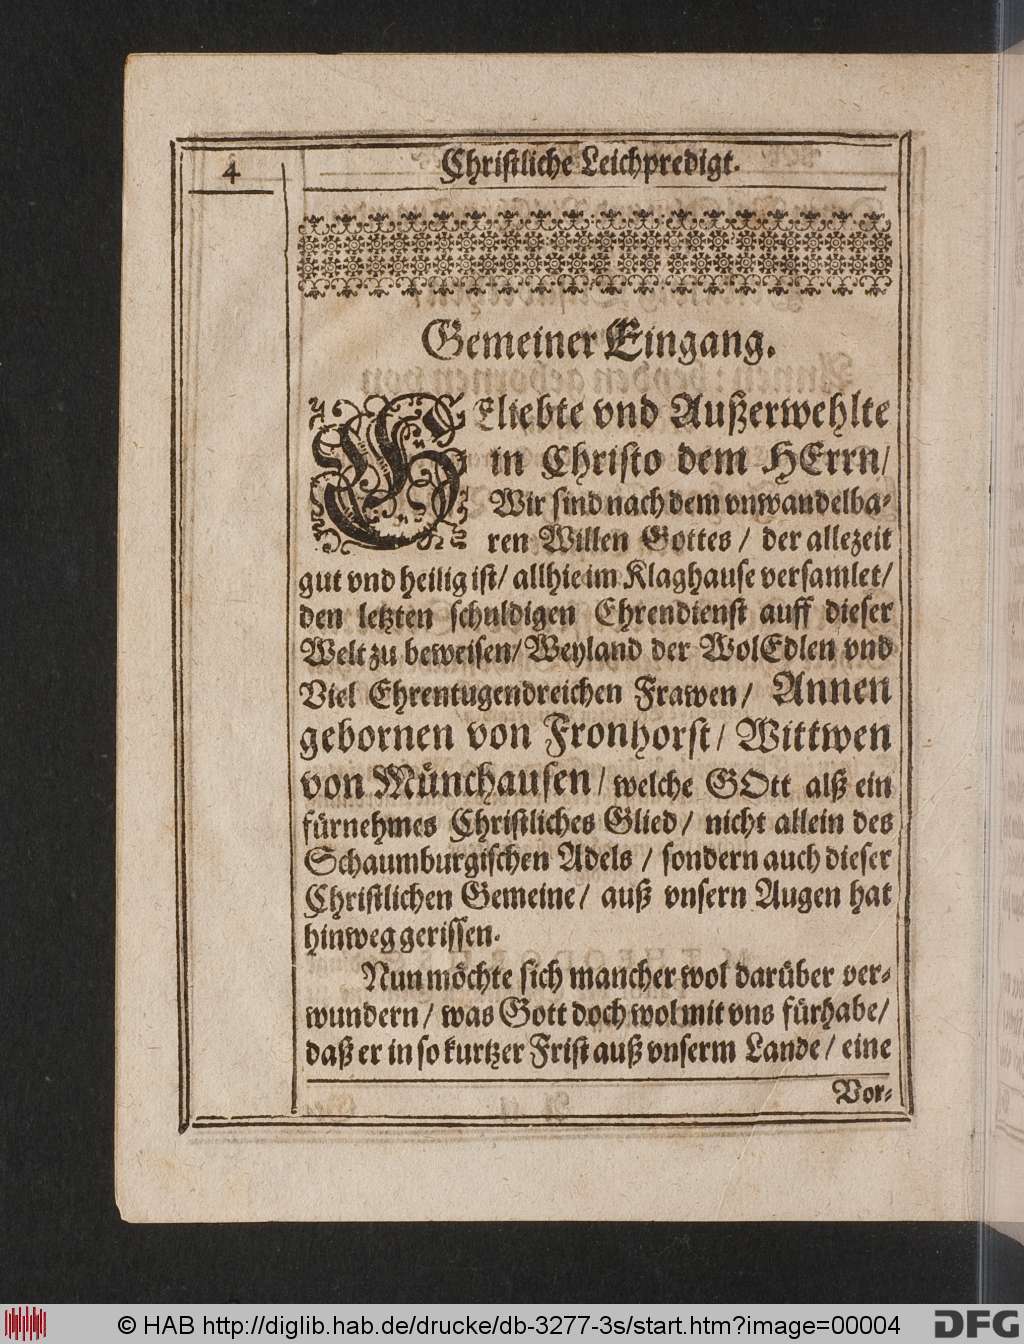 4
Christliche Leichpredigt.
Gemeiner Eingang.
GEliebte vnd Außerwehlte
in Christo dem HErrn/
Wir sind nach dem vnwandelba-
ren Willen Gottes / der allezeit
gut vnd heilig ist/ allhie im Klaghause versamlet/
den letzten schuldigen Ehrendienst auff dieser
Welt zu beweisen/ Weyland der WolEdlen vnd
Viel Ehrentugendreichen Frawen/ Annen
gebornen von Fronhorst/ Wittwen
von Münchausen/ welche GOtt alß ein
fürnehmes Christliches Glied/ nicht allein des
Schaumburgischen Adels / sondern auch dieser
Christlichen Gemeine/ auß vnsern Augen hat
hinweg gerissen.
Nun möchte sich mancher wol darüber ver-
wundern/ was Gott doch wol mit vns fürhabe/
daß er in so kurtzer Frist auß vnserm Lande/ eine
Vor-
© HAB http://diglib.hab.de/drucke/db-3277-3s/start.htm?image=00004
DFG